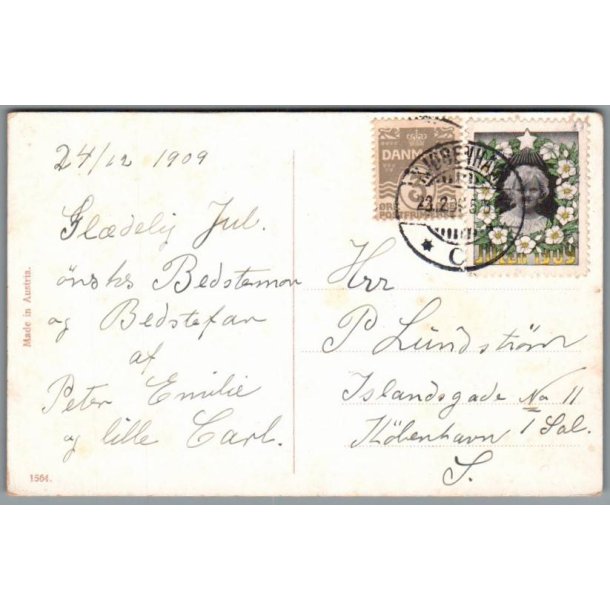 24/12 1909
Glædelig Jul.
önskes Bedstemor
og Bedstefar
af
Peter Emilie
og lille Carl.
Made in Austria.
1564.
DANMARK
3
POSTFRIMÆRKE
KJØBENHAVN
C
JULEN 1909
Herr
P Lundström
Islandsgade No 11
København 1 Sal.
S.